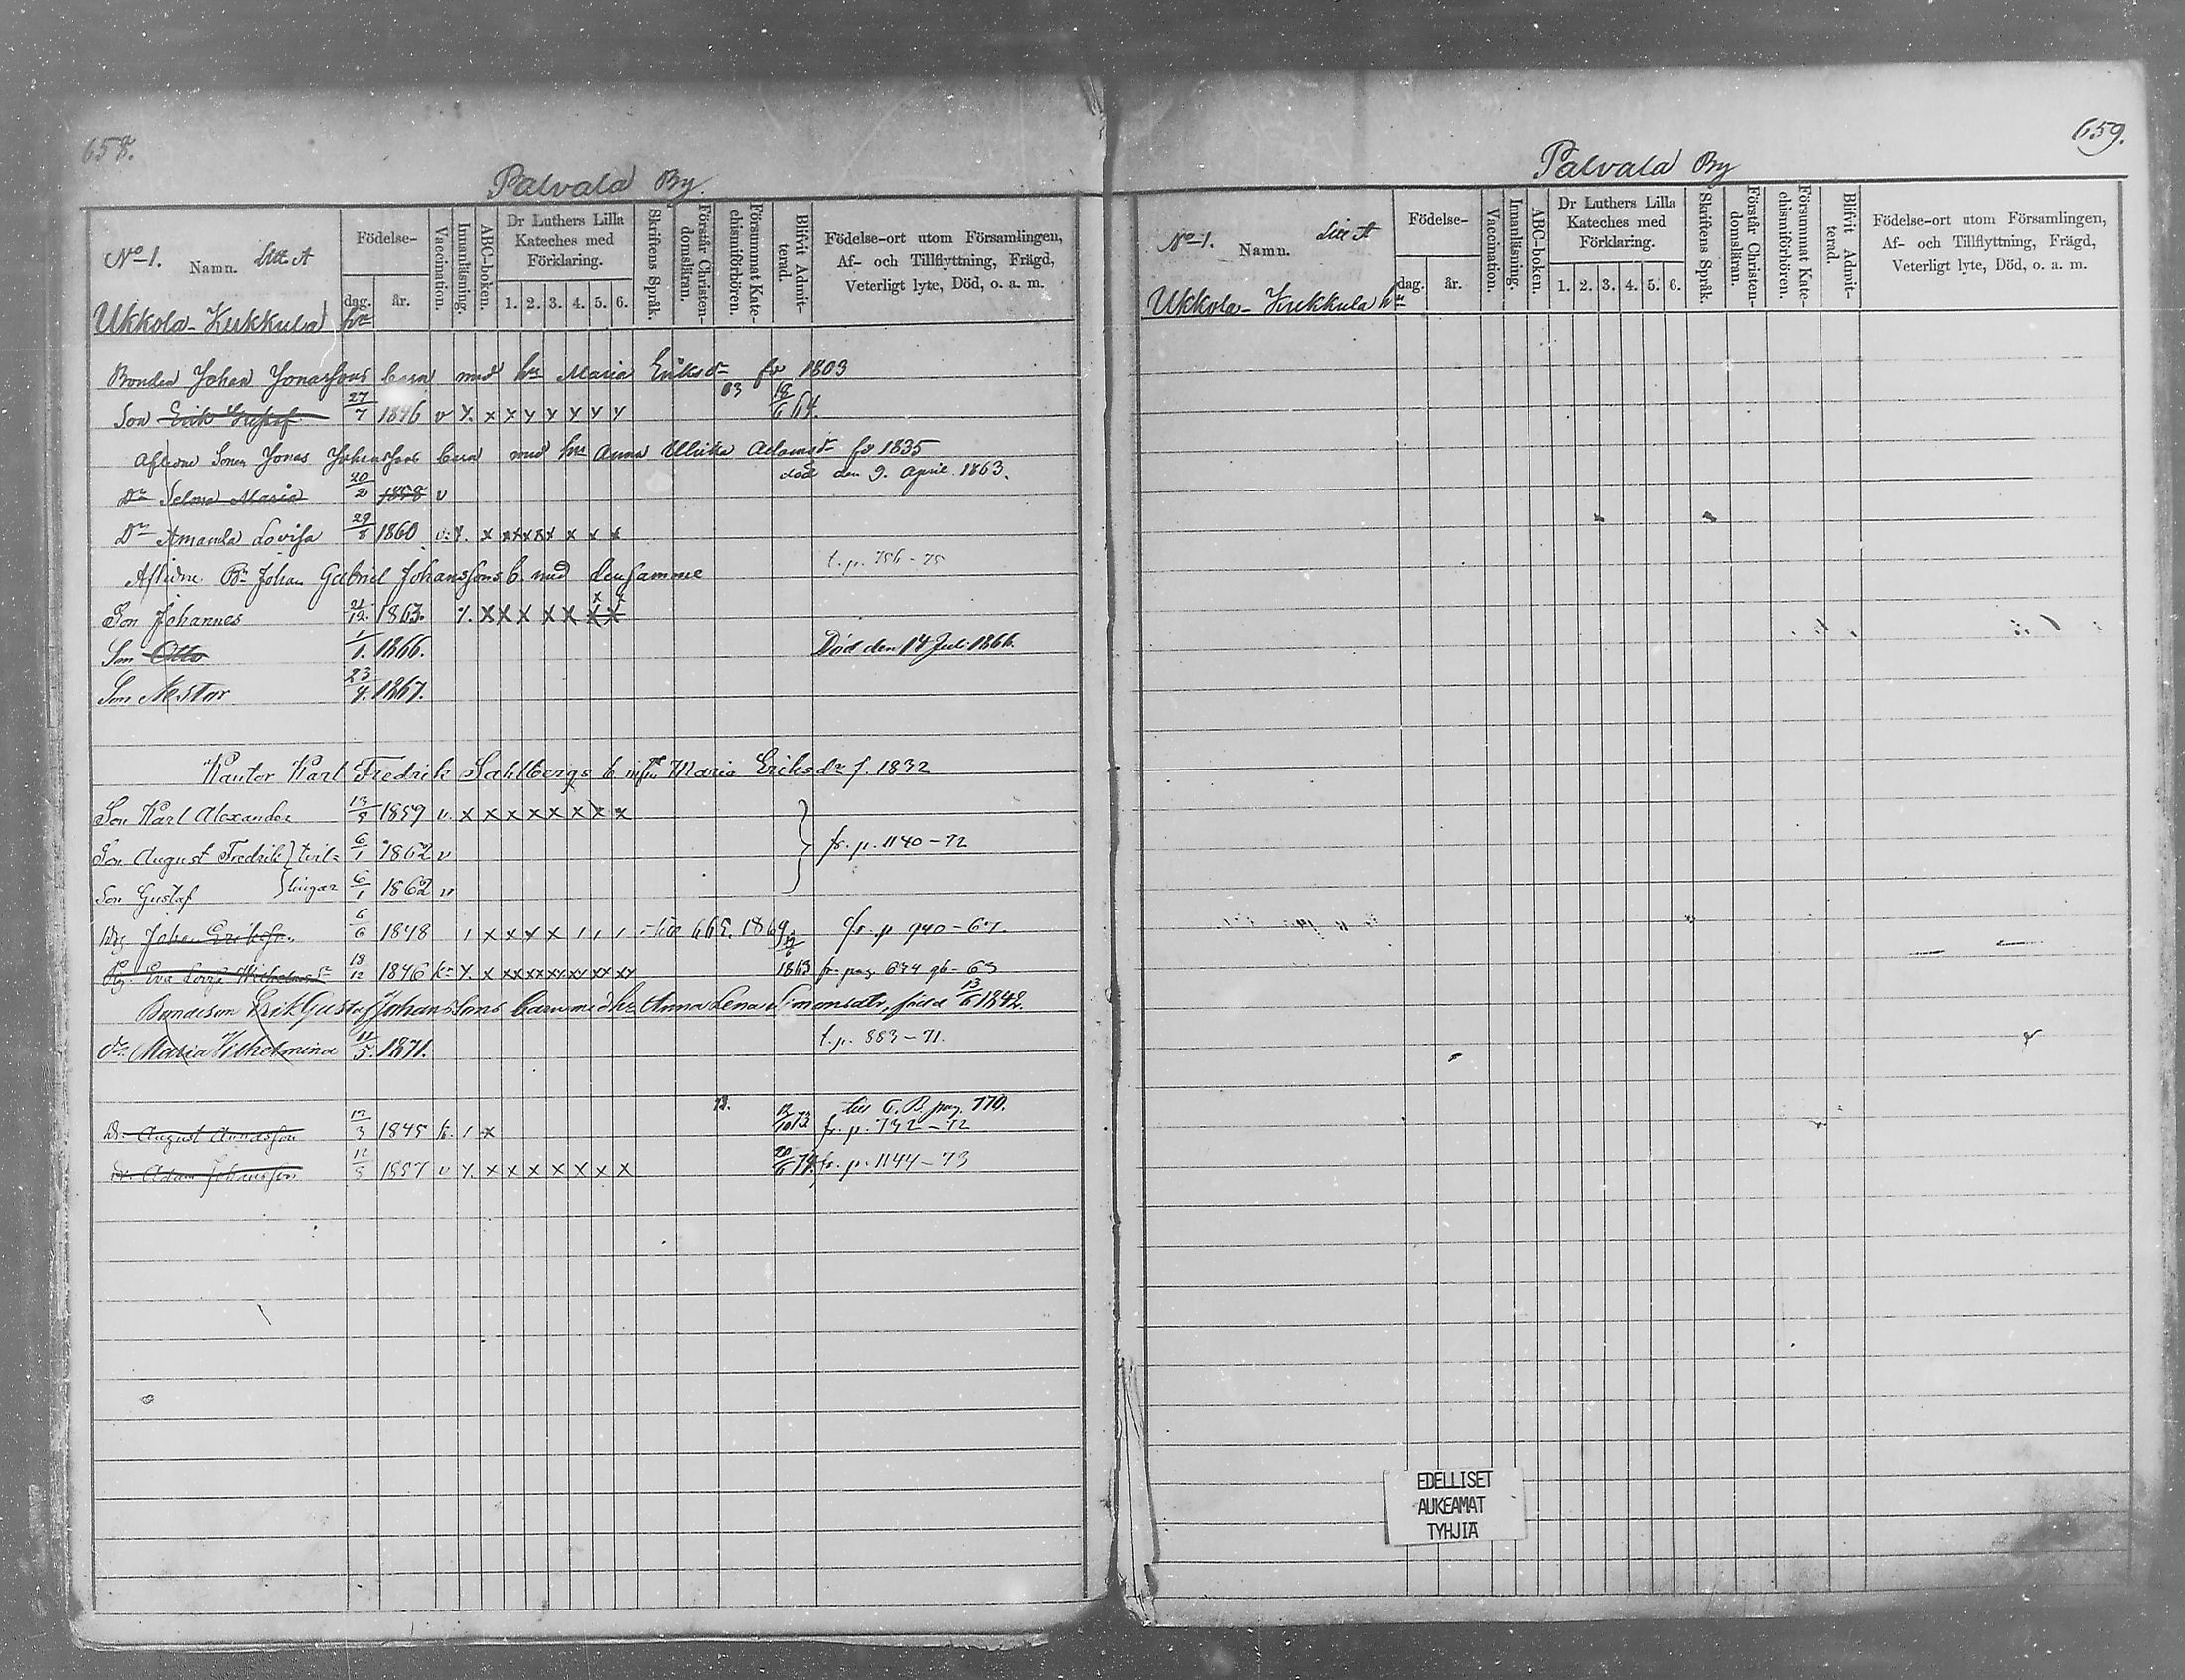 658.
Palvala By.
No 1. Namn. Litt. A
Ukkola-Kukkula hn
Födelse-
dag. år.
Vaccination.
Innanläsning.
ABC-boken.
Dr Luthers Lilla Kateches med Förklaring.
1. 2. 3. 4. 5. 6.
Skriftens Språk.
Förstår Christendomsläran.
Försummat Katechismiförhören.
Blifvit Admitterad.
Födelse-ort utom Församlingen,
Af- och Tillflyttning, Frägd,
Veterligt lyte, Död, o. a. m.
Bonden Johan Jonassons barn med hu Maria Eriksdr 1803
63
Son Erik Gustaf 27/7 1846 v x x y y y y y 18/6 64.
Aflidne Sonen Jonas Johanssons barn med hu Anna Ulrika Adamsdr 1835
Dr Selma Maria 20/2 1858 v död den 9. April. 1863.
Dr Amanda Lovisa 29/8 1860 x x x x x x x
Aflidne Bn Johan Gabriel Johanssons b. med densamma t. p. 756-75
Son Johannes 21/12. 1863. x x x x x x x
Son Otto 1/1. 1866. Död den 14 Juli 1866.
Son Nestor 23/4. 1867.
Kantor Karl Fredrik Sahlbergs b. Maria Eriksdr f. 1832
Son Karl Alexander 13/5 1859 v. x x x x x x x x
Son August Fredrik } tvil= 6/1 1862 v fr. p. 1140-72
Son Gustaf } lingar 6/1 1862 v
Drg Johan Eriksson 6/6 1848 x x x x 665. 1869 fr. p 940-67.
Pig. Eva Lovisa Wilhelmsdr 18/12 1846 x x 1863 fr. pag. 674 63
Bondeson Erik Gustaf Johanssons barn med hu Anna Lena Simonsdtr, född 13/6 1842.
Dr. Maria Wilhelmina 11/5. 1871. t. p. 883-71.
73. till T. B. pag. 770.
Dr. August 17/3 1845 x 10 73 fr. p. 732-72
Dr. Adam Johansson 12/5 1857 v x x x x x x x 20/6 74. fr. p. 1144-73
659.
Palvala By
No 1. Namn. Litt A
Ukkola-Kukkula hn
Födelse-
dag. år.
Vaccination.
Innanläsning.
ABC-boken.
Dr Luthers Lilla Kateches med Förklaring.
1. 2. 3. 4. 5. 6.
Skriftens Språk.
Förstår Christendomsläran.
Försummat Katechismiförhören.
Blifvit Admitterad.
Födelse-ort utom Församlingen,
Af- och Tillflyttning, Frägd,
Veterligt lyte, Död, o. a. m.
EDELLISET
AUKEAMAT
TYHJIÄ